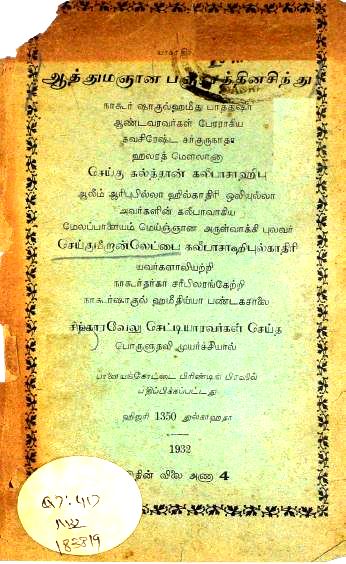 யாகாதிர்
ஆத்துமஞான பஞ்சரத்தினசிந்து
நாகூர் ஷாகுல்ஹமீது பாத்துஷா
ஆண்டவரவர்கள் பேரராகிய
தவசிரேஷ்ட சர்குருநாதா
ஹலரத் மௌலானா
செய்கு சுல்த்தான் கலீபாசாஹிபு
ஆலீம் ஆரிபுபில்லா ஹில்காதிரி ஒலியுல்லா
அவர்களின் கலீபாவாகிய
மேலப்பாளையம் மெய்ஞ்ஞான அருள்வாக்கி புலவர்
செய்குமீறான்லெப்பை கலிபாசாஹிபுல்காதிரி
யவர்களாலியற்றி
நாகூர்தர்கா சரீபிலரங்கேற்றி
நாகூர்ஷாகுல் ஹமீதிய்யா பண்டகசாலை
சிங்காரவேலு செட்டியாரவர்கள் செய்த
பொருளுதவி முயர்ச்சியால்
பாளையங்கோட்டை பிரிண்டிங் பிரஸில்
பதிப்பிக்கப்பட்டது
ஹிஜரி 1350 துல்காஹதா
1932
இதின் விலை அணா 4
183819